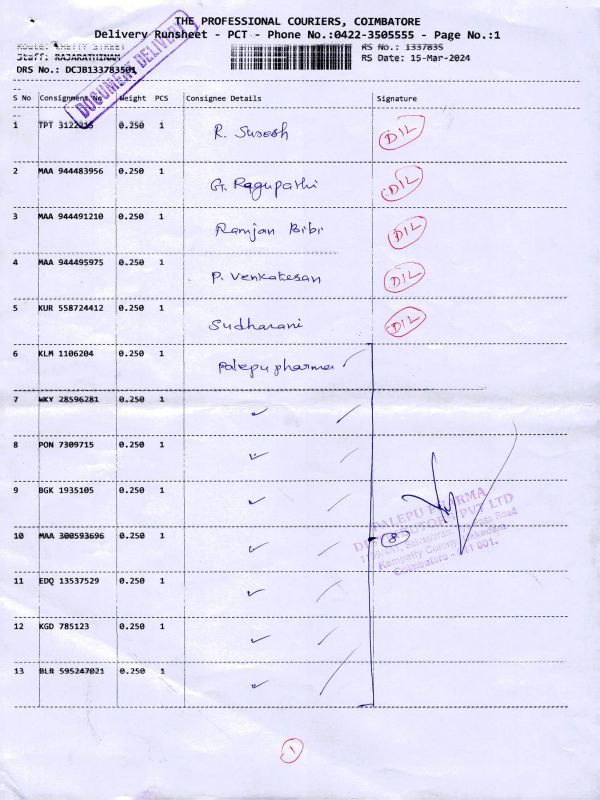 THE PROFESSIONAL COURIERS, COIMBATORE
Delivery Runsheet - PCT - Phone No.:0422-3505555 - Page No.:1
Route: CHETTY STREET
RS No.: 1337835
Staff: RAJARATHINAM
RS Date: 15-Mar-2024
DRS No.: DCJB133783501
DOCUMENT DELIVERY
S No Consignment No Weight PCS Consignee Details Signature
1 TPT 3122216 0.250 1 R. Suresh DIL
2 MAA 944483956 0.250 1 G. Ragupathi DIL
3 MAA 944491210 0.250 1 Ramjan Bibi DIL
4 MAA 944495975 0.250 1 P. Venkatesan DIL
5 KUR 558724412 0.250 1 Sudharani DIL
6 KLM 1106204 0.250 1 Palepu pharma
7 WKY 28596281 0.250 1
8 PON 7309715 0.250 1
9 BGK 1935105 0.250 1
10 MAA 300593696 0.250 1 8
PALEPU PHARMA
DISTRIBUTORS PVT LTD
Kempatty Colony
Coimbatore - 641 001.
11 EDQ 13537529 0.250 1
12 KGD 785123 0.250 1
13 BLR 595247021 0.250 1
1